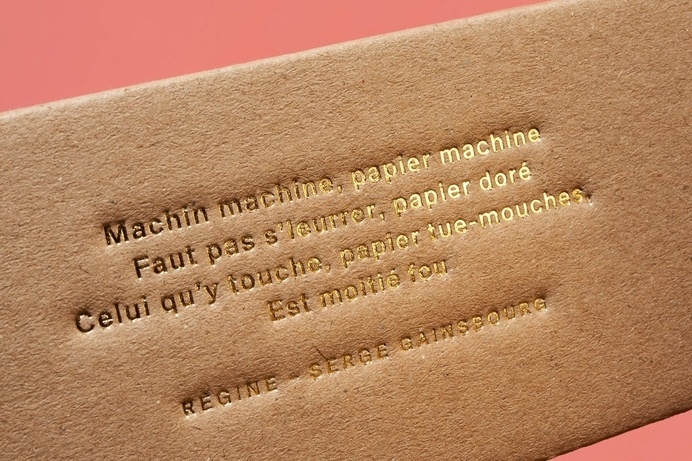 Machin machine, papier machine
Faut pas s'leurrer, papier doré
Celui qu'y touche, papier tue-mouches,
Est moitié fou
REGINE - SERGE GAINSBOURG